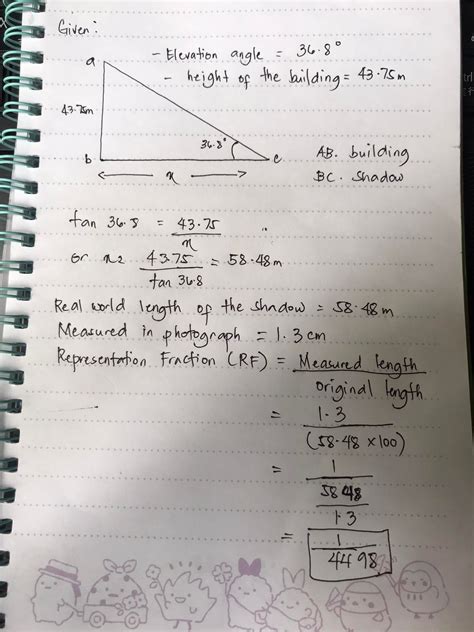 Given:
- Elevation angle = 36.8°
- height of the building = 43.75m
a
43.75m
36.8°
b
c
x
AB. building
BC. Shadow
tan 36.8 = 43.75
x
or x = 43.75 = 58.48m
tan 36.8
Real world length of the shadow = 58.48m
Measured in photograph = 1.3 cm
Representation Fraction (RF) = Measured length
original length
= 1.3
(58.48 x 100)
= 1
5848
1.3
= 1
4498